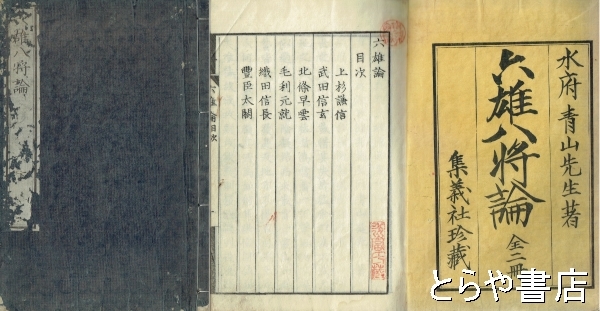 六雄八將論
六雄論
目次
上杉謙信
武田信玄
北條早雲
毛利元就
織田信長
豐臣太閤
六雄論目次
水府 青山先生著
六雄八將論 全二冊
集義社珍藏
とらや書店